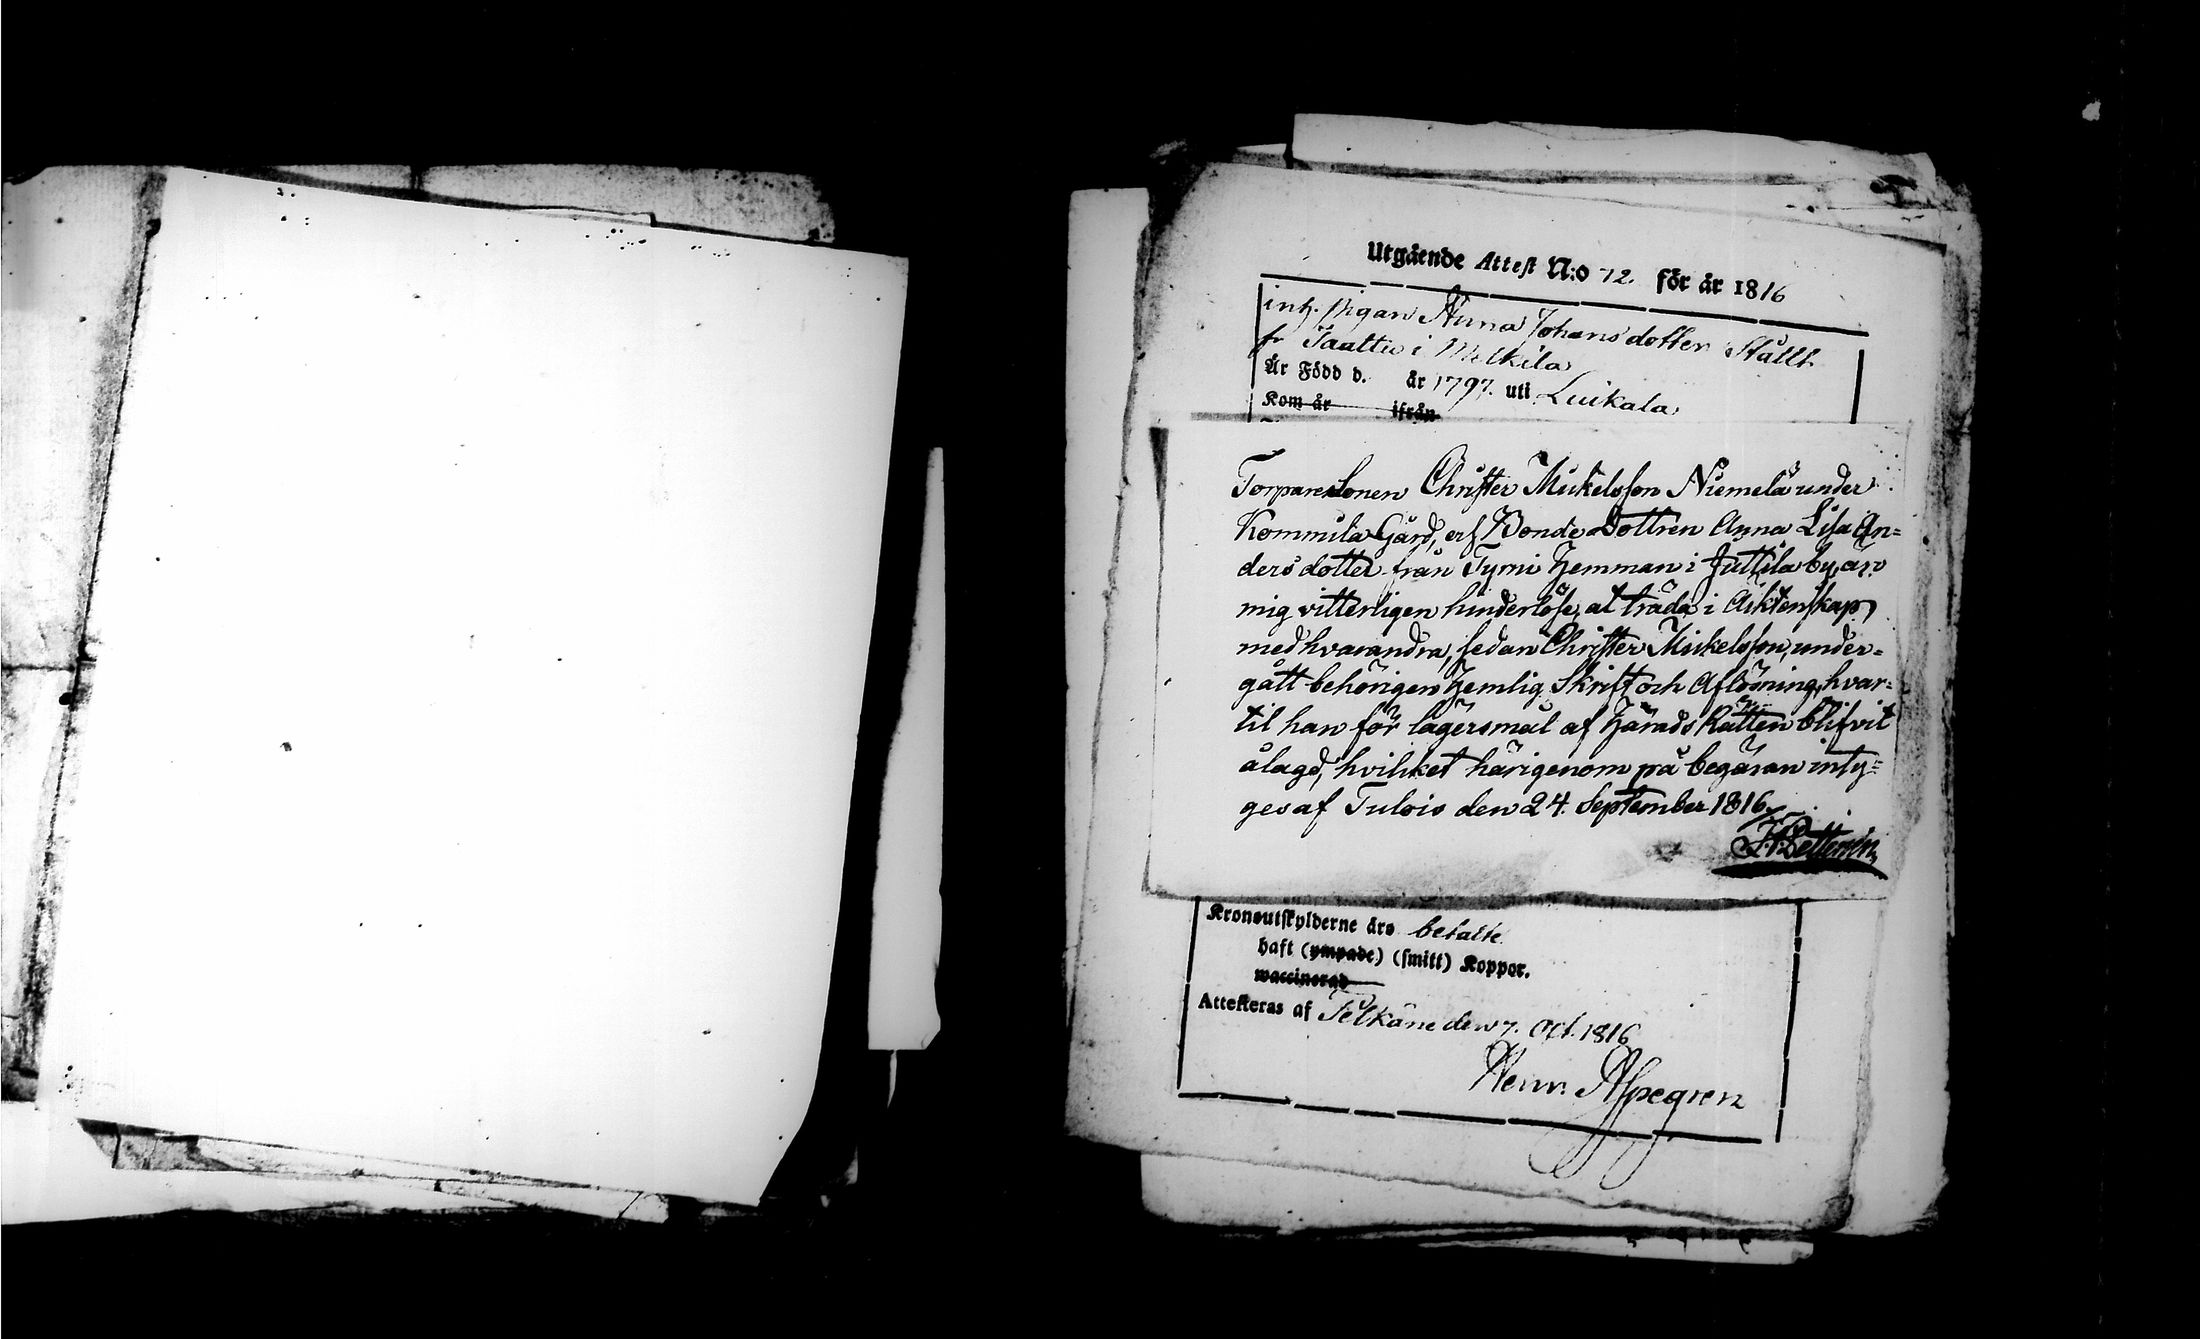 Utgående Attest N:o 72. för år 1816
inh. pigan Anna Johansdotter Ställt
fr Taattu i Melkila
Är Född d. år 1797. uti Luikala
Kom år ifrån
Torparesonen Christer Mickelsson Niemelä under
Kommila Gård, och Bonde Dottren Anna Lisa An=
ders dotter från Tyrni Hemman i Juttila by, äro
mig vitterligen hinderlöse, at träda i Äktenskap
med hvarandra, sedan Christer Mickelsson, under=
gått behörigen Hemlig Skrift och Aflösning, hvar=
til han för lägersmål af Härads Rätten blifvit
ålagd, hvilket härigenom på begäran inty=
ges af Tulois den 24. September 1816.
Kronoutskylderne äro betalte
haft (ympade) (smitt) Koppor.
waccinerad
Attesteras af Pelkäne den 7. Oct. 1816
Henr. Aspegren